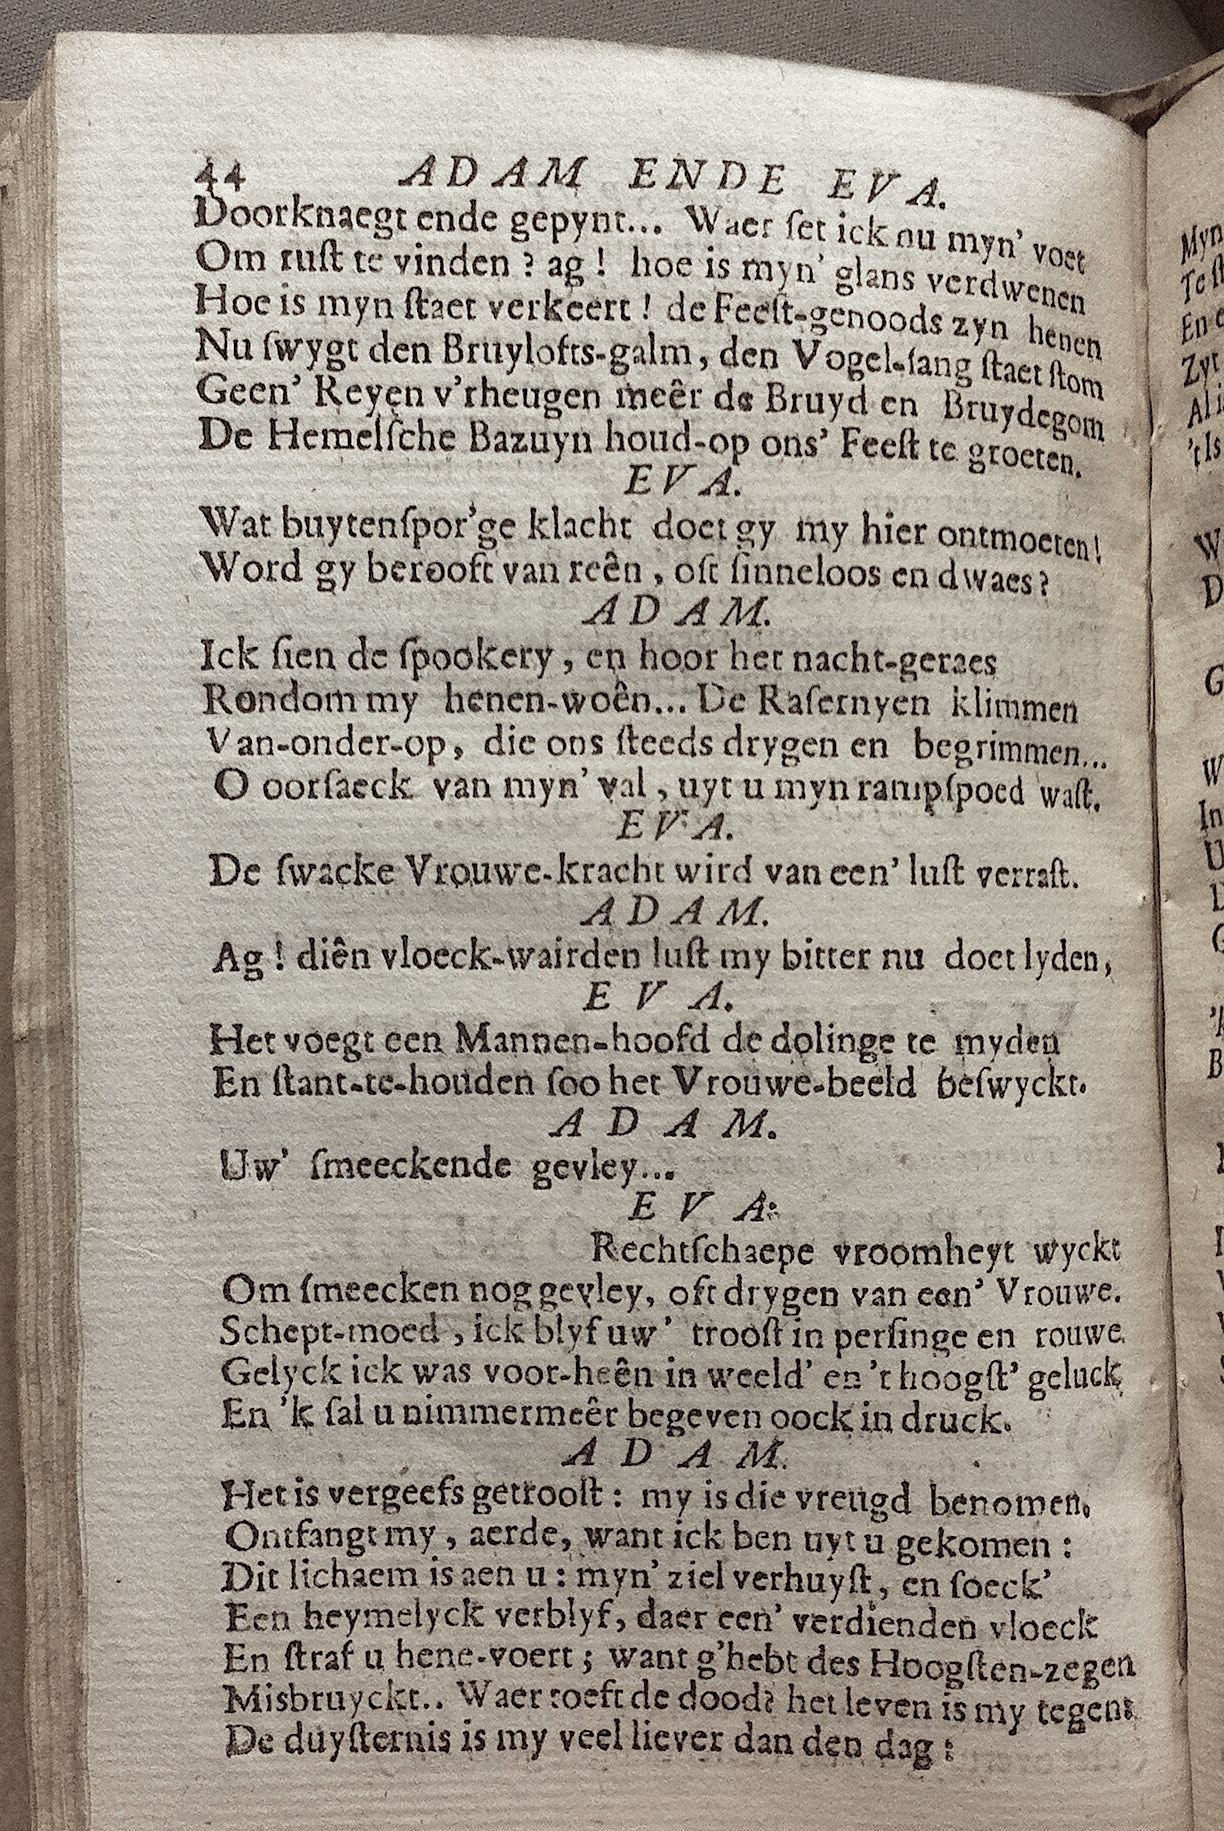 44 ADAM ENDE EVA.
Doorknaegt ende gepynt... Waer ſet ick nu myn' voet
Om ruſt te vinden ? ag ! hoe is myn' glans verdwenen
Hoe is myn ſtaet verkeert ! de Feeſt-genoods zyn henen
Nu ſwygt den Bruylofts-galm, den Vogel-ſang ſtaet ſtom
Geen' Reyen v'rheugen meêr de Bruyd en Bruydegom
De Hemelſche Bazuyn houd-op ons' Feeſt te groeten.
EVA.
Wat buytenſpor'ge klacht doet gy my hier ontmoeten!
Word gy berooft van reên, oft ſinneloos en dwaes?
ADAM.
Ick ſien de ſpookery, en hoor het nacht-geraes
Rondom my henen-woên... De Raſernyen klimmen
Van-onder-op, die ons ſteeds drygen en begrimmen...
O oorſaeck van myn' val, uyt u myn rampſpoed waſt.
EVA.
De ſwacke Vrouwe-kracht wird van een' luſt verraſt.
ADAM.
Ag ! diên vloeck-wairden luſt my bitter nu doet lyden,
EVA.
Het voegt een Mannen-hoofd de dolinge te myden
En ſtant-te-houden ſoo het Vrouwe-beeld beſwyckt.
ADAM.
Uw' ſmeeckende gevley...
EVA:
Rechtſchaepe vroomheyt wyckt
Om ſmeecken nog gevley, oft drygen van een' Vrouwe.
Schept-moed, ick blyf uw' trooſt in perſinge en rouwe
Gelyck ick was voor-heên in weeld' en 't hoogſt' geluck
En 'k ſal u nimmermeêr begeven oock in druck.
ADAM.
Het is vergeefs getrooſt : my is die vreugd benomen.
Ontfangt my, aerde, want ick ben uyt u gekomen :
Dit lichaem is aen u : myn' ziel verhuyſt, en ſoeck'
Een heymelyck verblyf, daer een' verdienden vloeck
En ſtraf u hene-voert ; want g'hebt des Hoogſten-zegen
Misbruyckt.. Waer toeft de dood? het leven is my tegen:
De duyſternis is my veel liever dan den dag :